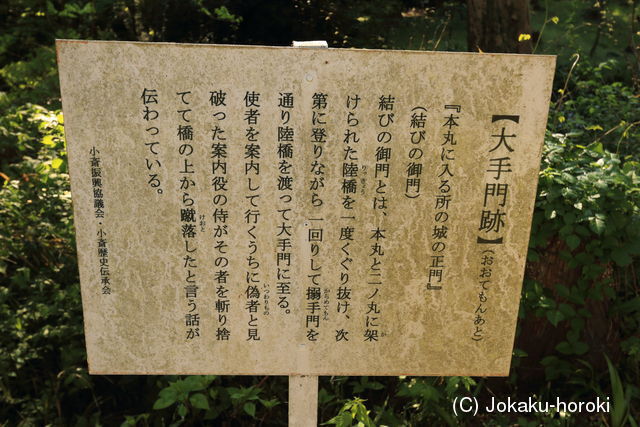 【大手門跡】(おおてもんあと)
『本丸に入る所の城の正門』
(結びの御門)
結びの御門とは、本丸と二ノ丸に架
けられた陸橋を一度くぐり抜け、次
第に登りながら一回りして搦手門を
通り陸橋を渡って大手門に至る。
使者を案内して行くうちに偽者と見
破った案内役の侍がその者を斬り捨
てて橋の上から蹴落したと言う話が
伝わっている。
小斎振興協議会・小斎歴史伝承会
(C) Jokaku-horoki